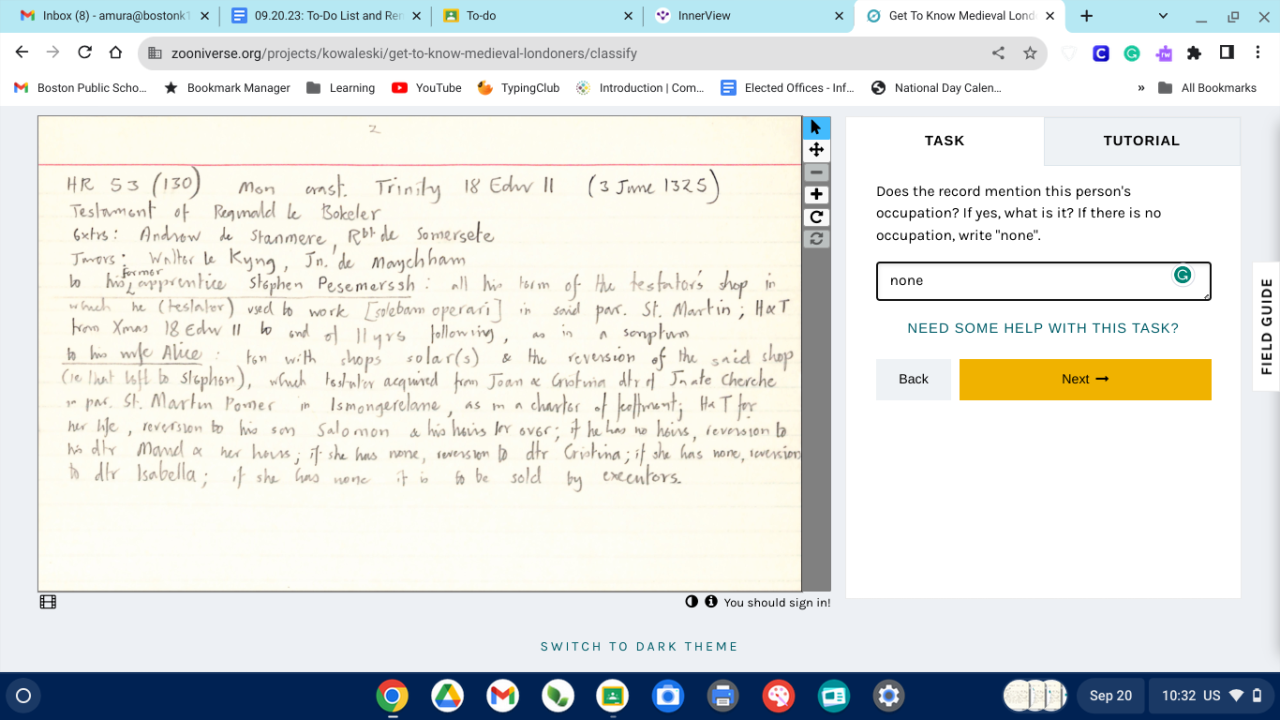 Inbox (8) - amura@bostonk1
09.20.23: To-Do List and Rem
To-do
InnerView
Get To Know Medieval Lond
zooniverse.org/projects/kowaleski/get-to-know-medieval-londoners/classify
Boston Public Scho...
Bookmark Manager
Learning
YouTube
TypingClub
Introduction | Com...
Elected Offices - Inf...
National Day Calen...
»
All Bookmarks
2
HR 53 (130) Mon crast. Trinity 18 Edw II (3 June 1325)
Testament of Reginald le Bokeler
Extrs: Andrew de Stanmere, Rbt de Somersete
Jurors: Walter le Kyng, Jn. de Maychham
to his former apprentice Stephen Pesemerssh: all his term of the testator's shop in
which he (testator) used to work [solebam operari] in said par. St. Martin; H&T
from Xmas 18 Edw II to end of 11 yrs following, as in a scriptum
to his wife Alice: ten with shops solar(s) & the reversion of the said shop
(ie that left to Stephen), which testator acquired from Joan & Cristina dtr of Jn atte Cherche
in par. St. Martin Pomer in Ismongerelane, as in a charter of feoffment; H&T for
her life, reversion to his son Salomon & his heirs for ever; if he has no heirs, reversion to
his dtr Maud & her heirs; if she has none, reversion to dtr Cristina; if she has none, reversion
to dtr Isabella; if she has none it is to be sold by executors.
You should sign in!
TASK
TUTORIAL
Does the record mention this person's
occupation? If yes, what is it? If there is no
occupation, write "none".
none
NEED SOME HELP WITH THIS TASK?
Back
Next
FIELD GUIDE
SWITCH TO DARK THEME
Sep 20
10:32 US